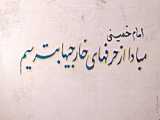 امام خمینی
مبادا از حرفهای خارجیها بترسیم